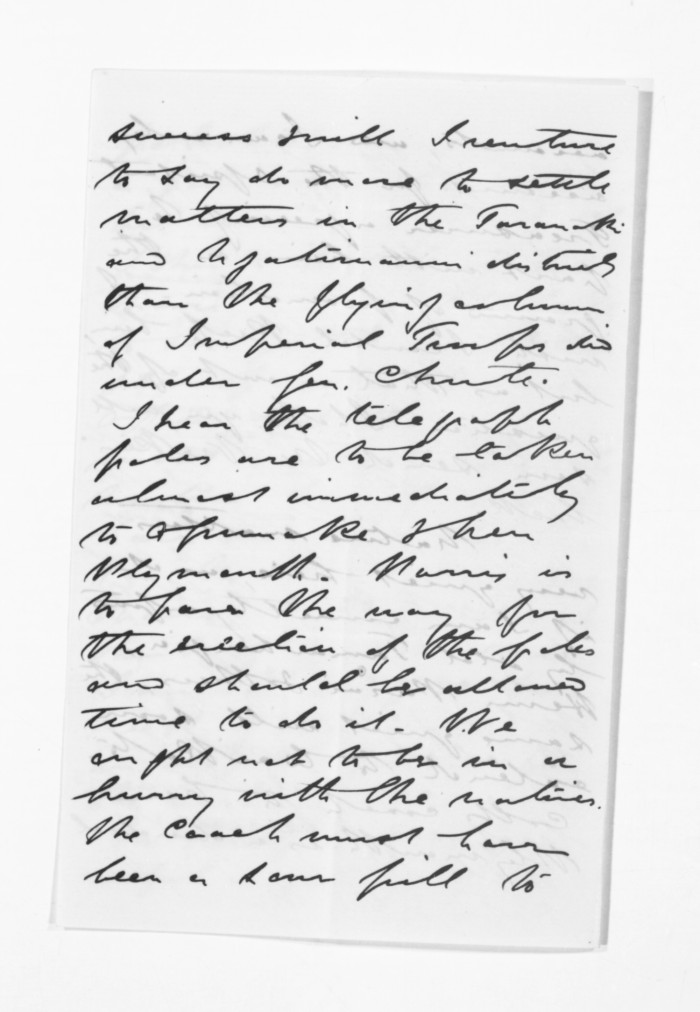 success & will I venture
to say do more to settle
matters in the Taranaki
and Ngatiruanui districts
than the flying column
of Imperial Troops did
under Gen. Chute.
I hear the telegraph
poles are to be taken
almost immediately
to Opunake & New
Plymouth. Parris is
to pave the way for
the erection of the poles
and should be allowed
time to do it. We
ought not to be in a
hurry with the natives.
the Coach must have
been a sour pill to